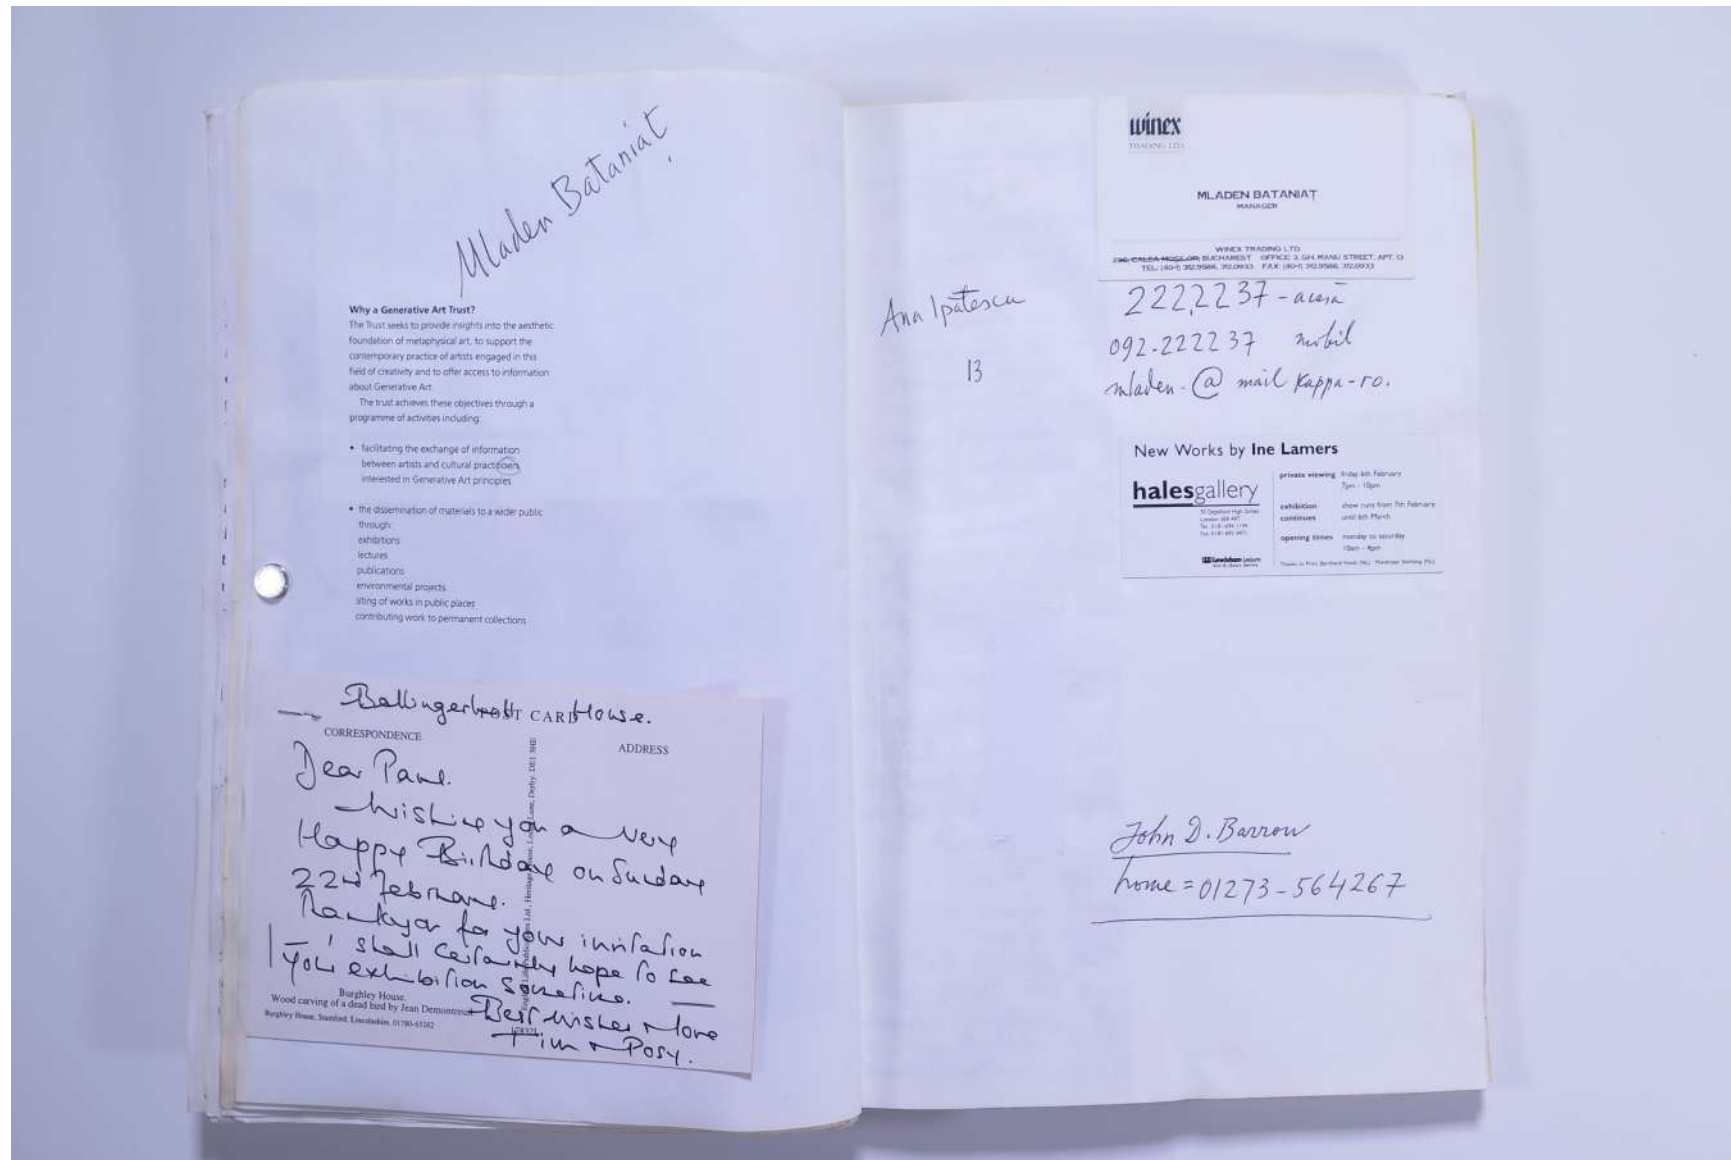 Mladen Bataniaț
Why a Generative Art Trust?
The Trust seeks to provide insights into the aesthetic
foundation of metaphysical art, to support the
contemporary practice of artists engaged in this
field of creativity and to offer access to information
about Generative Art.
The trust achieves these objectives through a
programme of activities including:
• facilitating the exchange of information
between artists and cultural practitioers
interested in Generative Art principles
• the dissemination of materials to a wider public
through:
exhibitions
lectures
publications
environmental projects
siting of works in public places
contributing work to permanent collections
House.
POST CARD
CORRESPONDENCE
ADDRESS
Dear Paul.
Wishing you a very
Happy Birthday on Sunday
22nd February.
Thankyou for your invitation
I shall certainly hope to see
your exhibition sometime.
Best wishes + love
Tim + Posy.
Burghley House.
Wood carving of a dead bird by Jean Demontreuil
Burghley House, Stamford, Lincolnshire. 01780-63242
winex
TRADING LTD.
MLADEN BATANIAȚ
MANAGER
WINEX TRADING LTD.
236, CALEA MOSILOR, BUCHAREST OFFICE: 3, GH. MANU STREET, APT. 13
Ana Ipătescu
13
222,2237 - acasă
092-222237 mobil
mladen-@ mail kappa-ro.
New Works by Ine Lamers
halesgallery
70 Deptford High Street
private viewing friday 6th February
7pm - 10pm
exhibition show runs from 7th February
continues until 6th March
opening times monday to saturday
10am - 4pm
Lewisham Leisure
John D. Barrow
home = 01273-564267